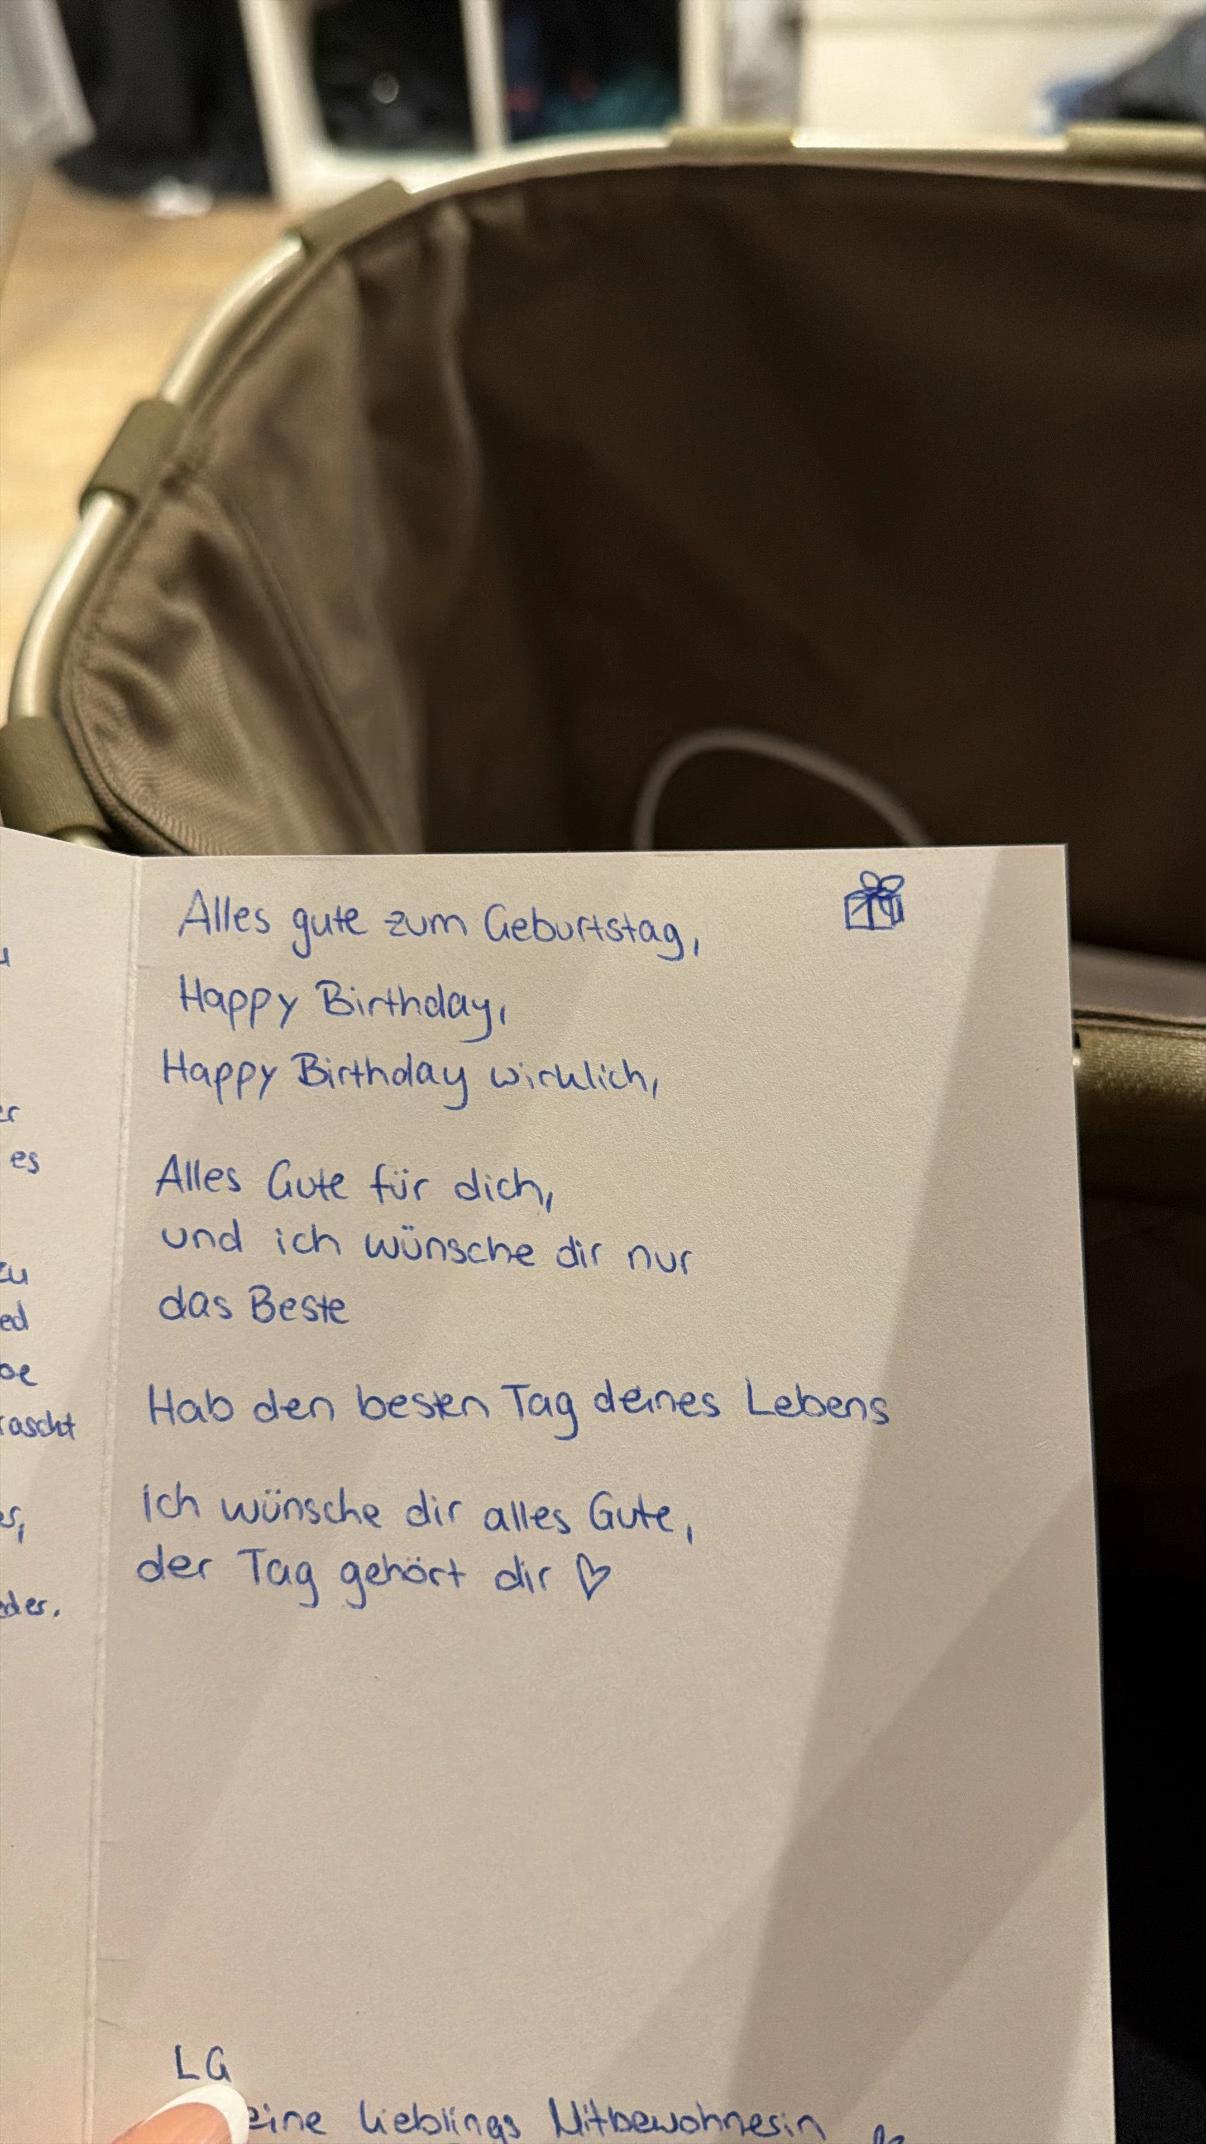 er
es
zu
ed
be
rascht
es,
eder.
Alles gute zum Geburtstag,
Happy Birthday,
Happy Birthday wirklich,
Alles Gute für dich,
und ich wünsche dir nur
das Beste
Hab den besten Tag deines Lebens
Ich wünsche dir alles Gute,
der Tag gehört dir ♡
LG
eine lieblings Mitbewohnerin